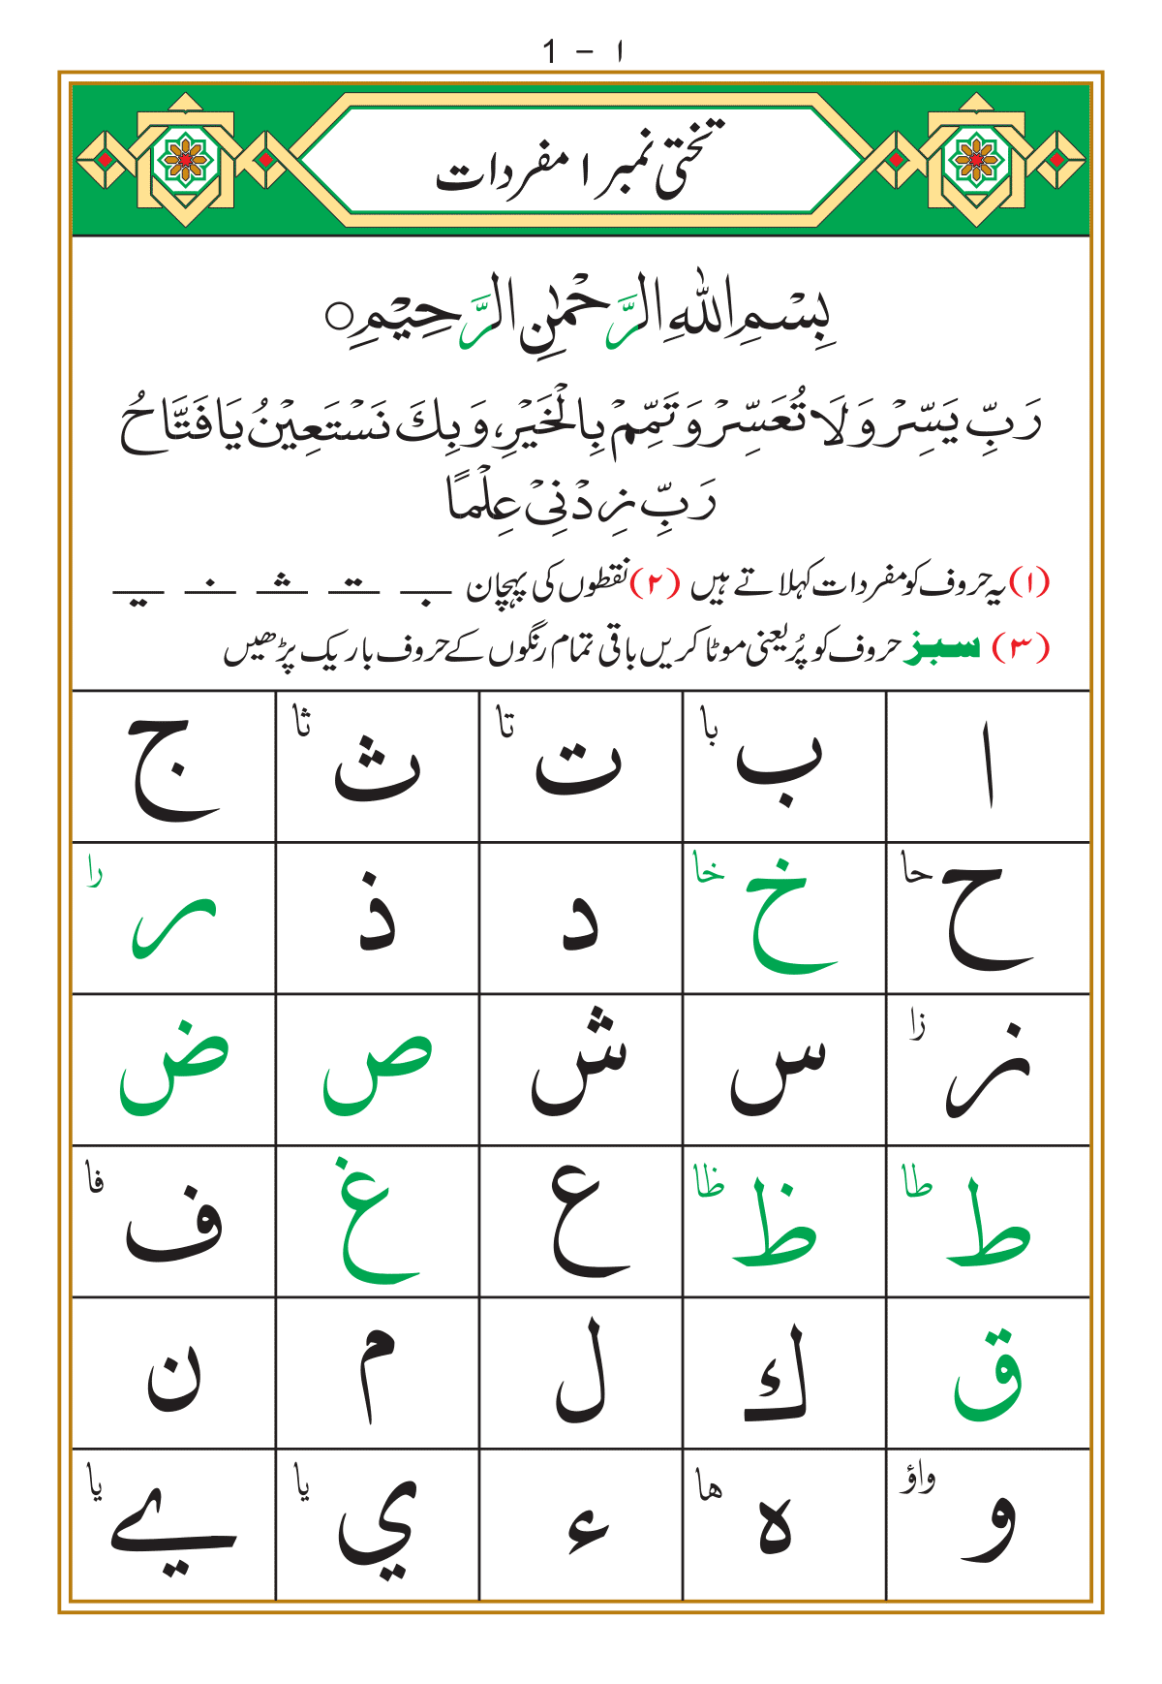 1 - ا
تختی نمبر ۱ مفردات
بِسْمِ اللّٰهِ الرَّحْمٰنِ الرَّحِيْمِ ○
رَبِّ يَسِّرْ وَلَا تُعَسِّرْ وَتَمِّمْ بِالْخَيْرِ، وَبِكَ نَسْتَعِيْنُ يَا فَتَّاحُ
رَبِّ زِدْنِيْ عِلْمًا
(۱) یہ حروف کو مفردات کہلاتے ہیں (۲) نقطوں کی پہچان ـبـ ـتـ ـثـ ـنـ ـيـ
(۳) سبز حروف کو پُر یعنی موٹا کریں باقی تمام رنگوں کے حروف باریک پڑھیں
ا ب با ت تا ث ثا ج
ح حا خ خا د ذ ر را
ز زا س ش ص ض
ط طا ظ ظا ع غ ف فا
ق ك ل م ن
و واؤ ه ها ء ي يا ے يا